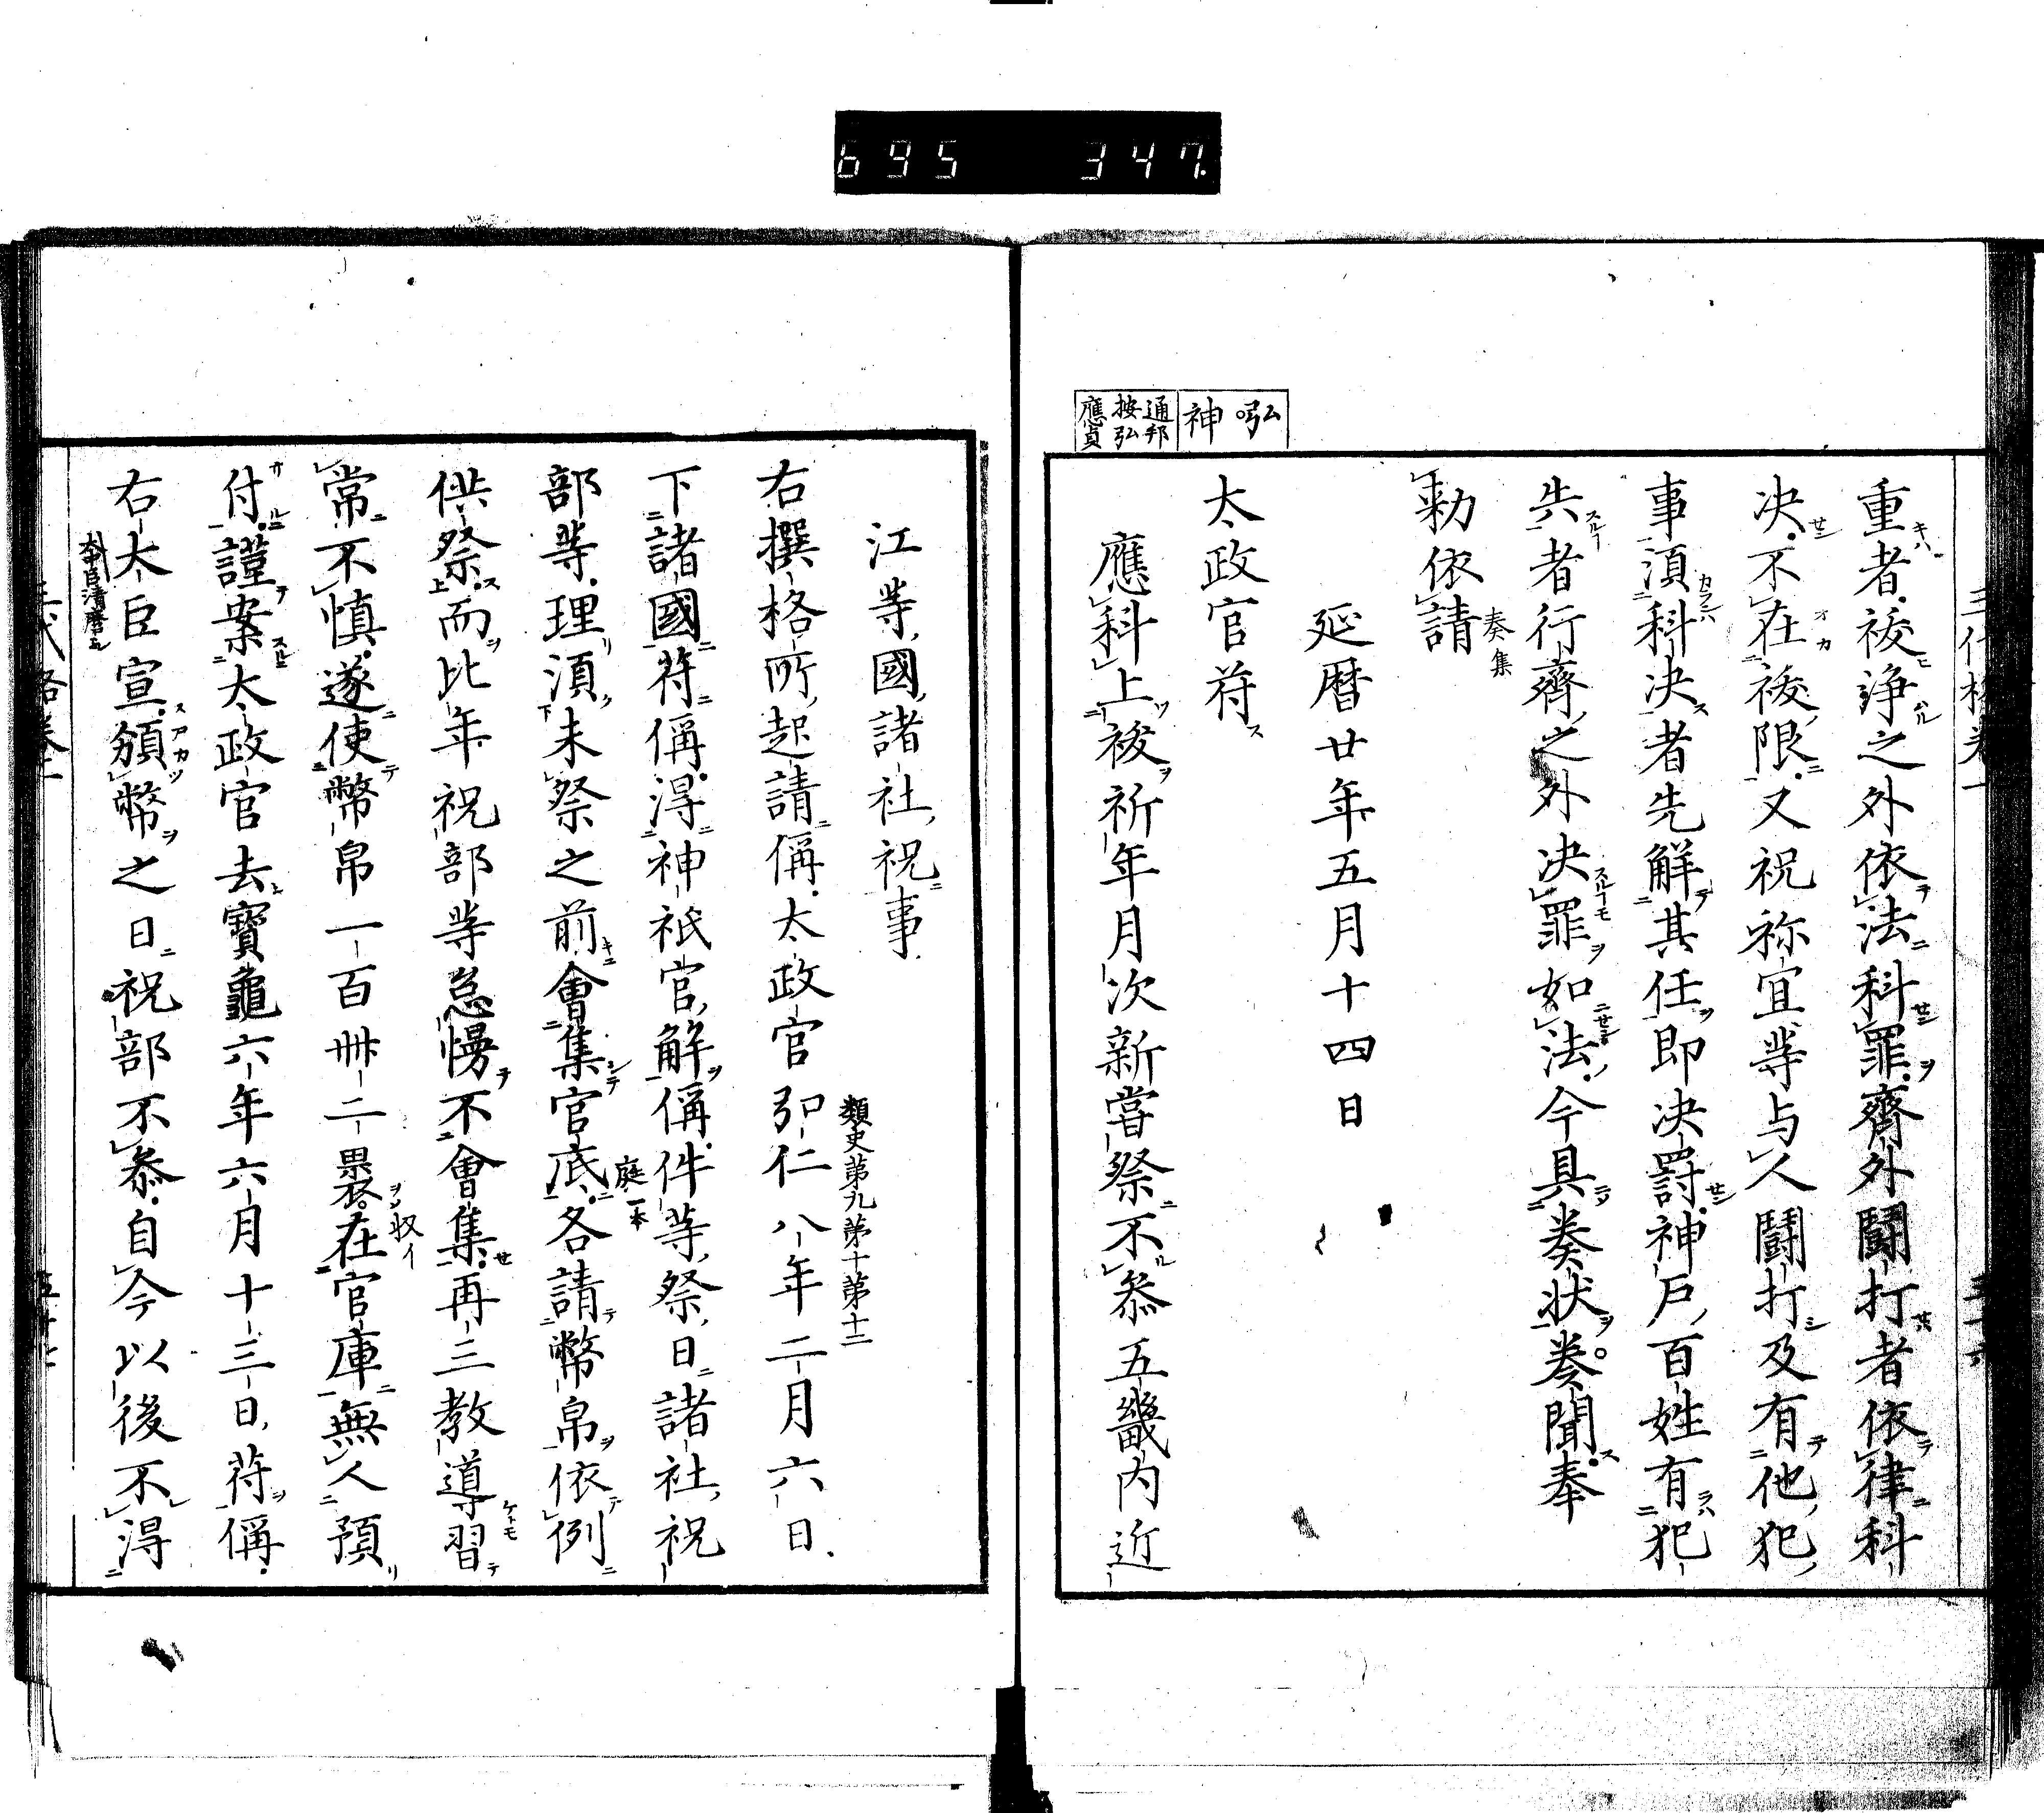 695 347
重者祓浄之外依法科罪齋外闘打者依律科
决不在祓限又祝祢宜等与人闘打及有他犯
事湏科决者先解其任即决罸神戸百姓有犯
失者行齋之外决罪如法今具奏状奏聞奉
勅依請
奏集
延暦廿年五月十四日
弘神
通邦按弘應貞
太政官符
應科上祓祈年月次新嘗祭不叅五畿内近
江等國諸社祝事
類史第九第十第十二
右撰格所起請偁太政官弘仁八年二月六日
下諸國符偁得神祇官解偁件等祭日諸社祝
部等理湏未祭之前會集官底各請幣帛依例
庭一本
供祭而比年祝部等怠慢不會集再三教導習
常不慎遂使幣帛一百卌二褁在官庫無人預
収イ
付謹案太政官去寶龜六年六月十三日符偁
右大臣宣頒幣之日祝部不叅自今以後不得